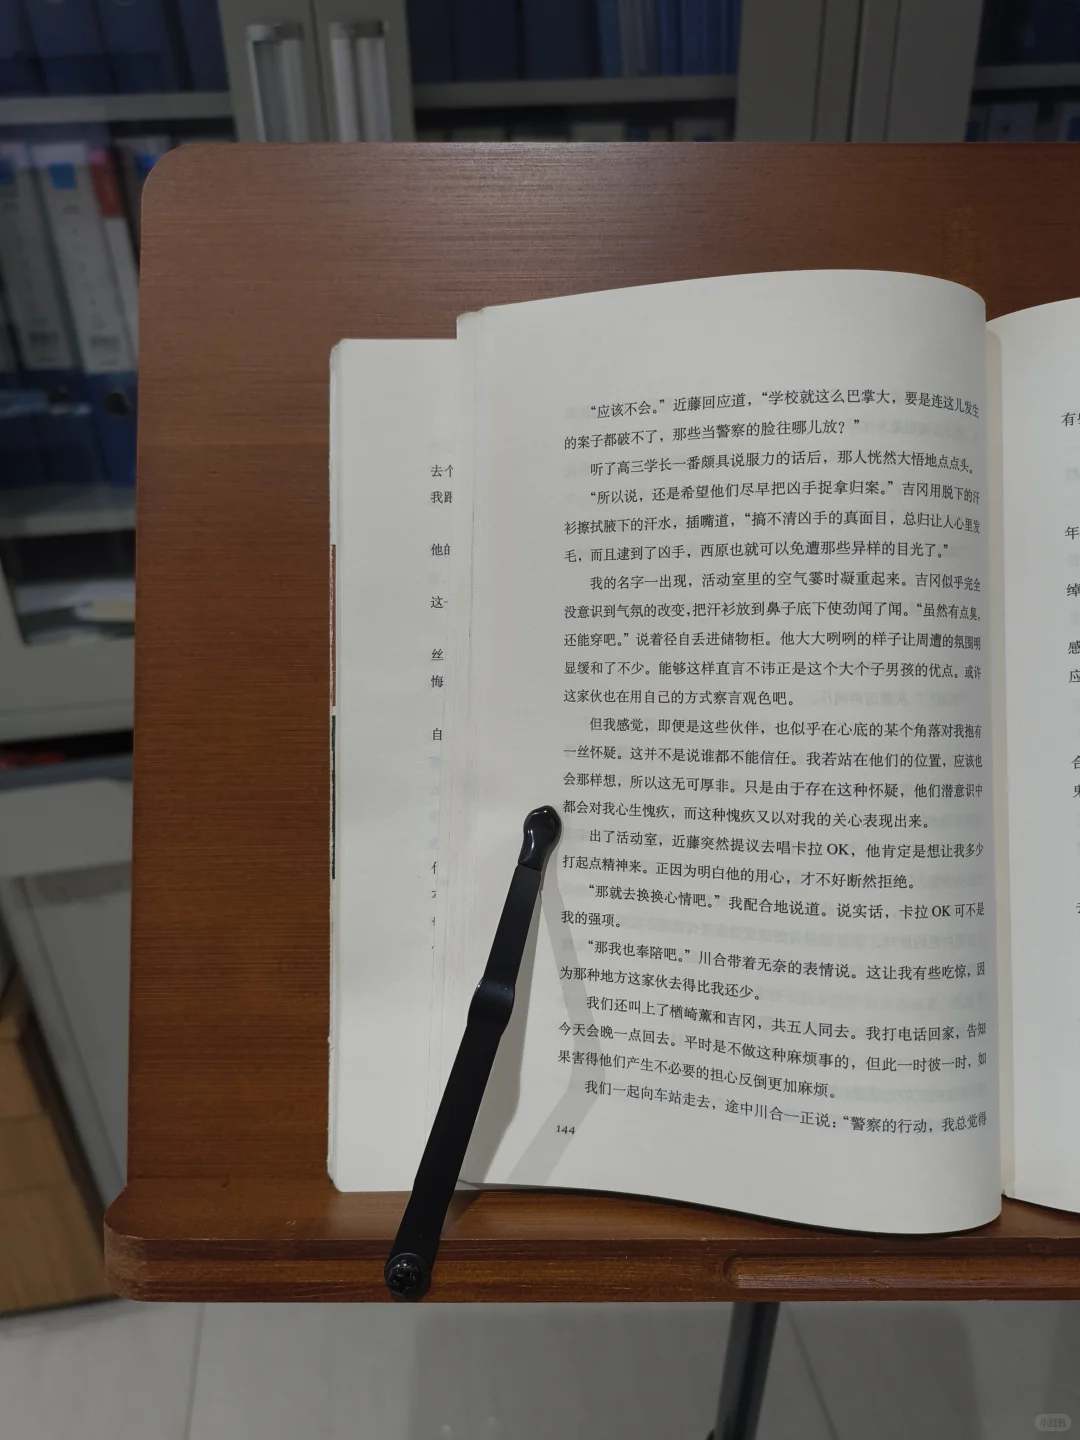 去个
我跟
他的
这
丝
悔
自
“应该不会。”近藤回应道，“学校就这么巴掌大，要是连这儿发生
的案子都破不了，那些当警察的脸往哪儿放？”
听了高三学长一番颇具说服力的话后，那人恍然大悟地点点头。
“所以说，还是希望他们尽早把凶手捉拿归案。”吉冈用脱下的汗
衫擦拭腋下的汗水，插嘴道，“搞不清凶手的真面目，总归让人心里发
毛，而且逮到了凶手，西原也就可以免遭那些异样的目光了。”
我的名字一出现，活动室里的空气霎时凝重起来。吉冈似乎完全
没意识到气氛的改变，把汗衫放到鼻子底下使劲闻了闻。“虽然有点臭，
还能穿吧。”说着径自丢进储物柜。他大大咧咧的样子让周遭的氛围明
显缓和了不少。能够这样直言不讳正是这个大个子男孩的优点。或许
这家伙也在用自己的方式察言观色吧。
但我感觉，即便是这些伙伴，也似乎在心底的某个角落对我抱有
一丝怀疑。这并不是说谁都不能信任。我若站在他们的位置，应该也
会那样想，所以这无可厚非。只是由于存在这种怀疑，他们潜意识中
都会对我心生愧疚，而这种愧疚又以对我的关心表现出来。
出了活动室，近藤突然提议去唱卡拉OK，他肯定是想让我多少
打起点精神来。正因为明白他的用心，才不好断然拒绝。
“那就去换换心情吧。”我配合地说道。说实话，卡拉OK可不是
我的强项。
“那我也奉陪吧。”川合带着无奈的表情说。这让我有些吃惊，因
为那种地方这家伙去得比我还少。
我们还叫上了楢崎薰和吉冈，共五人同去。我打电话回家，告知
今天会晚一点回去。平时是不做这种麻烦事的，但此一时彼一时，如
果害得他们产生不必要的担心反倒更加麻烦。
我们一起向车站走去，途中川合一正说：“警察的行动，我总觉得
144
有
年
绰
感
应
合
小红书